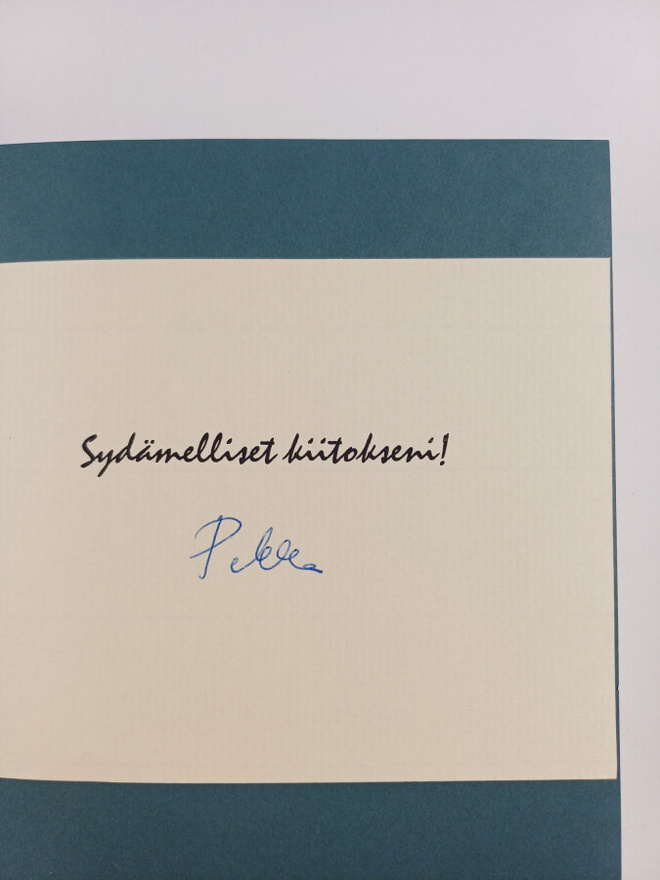 Sydämelliset kiitokseni!
Pekka